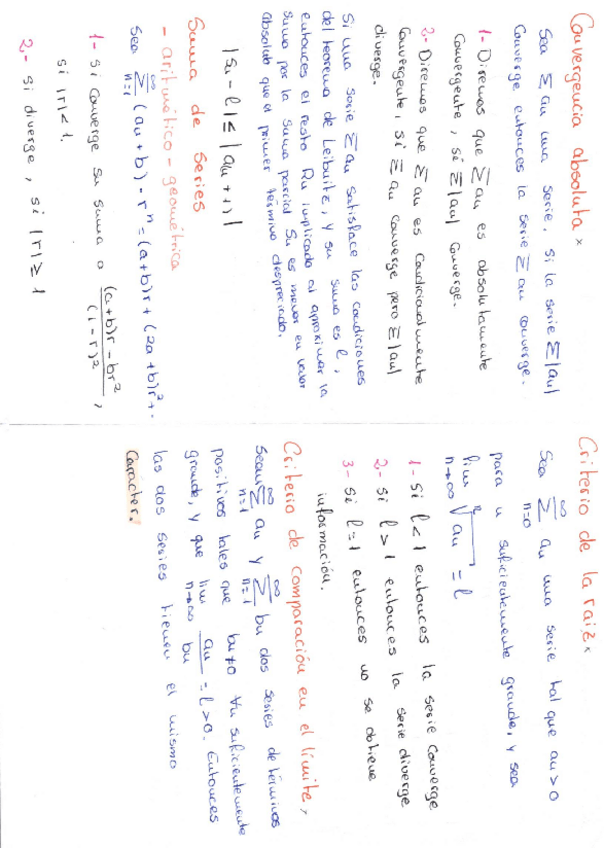 Convergencia absoluta
Sea Σ an una serie, si la serie Σ|an|
converge entonces la serie Σ an converge.
1- Diremos que Σ an es absolutamente
convergente, si Σ|an| converge.
2- Diremos que Σ an es condicionalmente
convergente, si Σ an converge pero Σ|an|
diverge.
Si una serie Σ an satisface las condiciones
del teorema de Leibnitz, y su suma es l,
entonces el resto Rn implicado al aproximar la
suma por la suma parcial Sn es menor en valor
absoluto que el primer término despreciado.
|Sn - l| ≤ |an+1|
Suma de series
- aritmético-geométrica
Sea Σ(an+b)·r^n = (a+b)r + (2a+b)r²+..
n=1
∞
1- si converge su suma a (a+b)r - br² / (1-r)²,
si |r|<1.
2- si diverge, si |r| ≥ 1
Criterio de la raiz
Sea Σ an una serie tal que an>0
n=0
∞
para n suficientemente grande, y sea
lim n→∞ ⁿ√an = l
1- si l<1 entonces la serie converge
2- si l>1 entonces la serie diverge
3- si l=1 entonces no se obtiene
información.
Criterio de comparación en el límite,
Sean Σ an y Σ bn dos series de términos
n=1 n=1
∞ ∞
positivos tales que bn≠0 ∀n suficientemente
grande, y que lim n→∞ an/bn = l>0. Entonces
las dos series tienen el mismo
carácter.